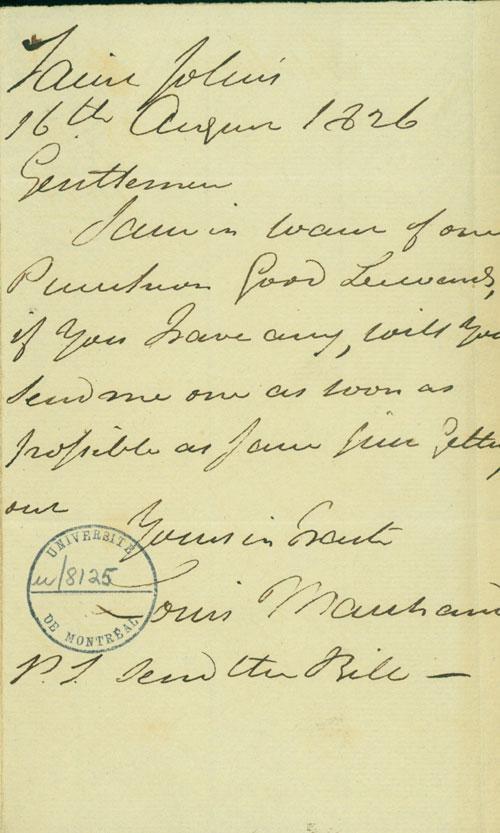 Saint John's
16th August 1826
Gentlemen
I am in want of one
Puncheon Good
if You have any, will You
send me one as soon as
possible as I am Just Getting
out
Yours in haste
Louis Marchand
P.S. send the Bill —
UNIVERSITÉ
u/8125
DE MONTRÉAL